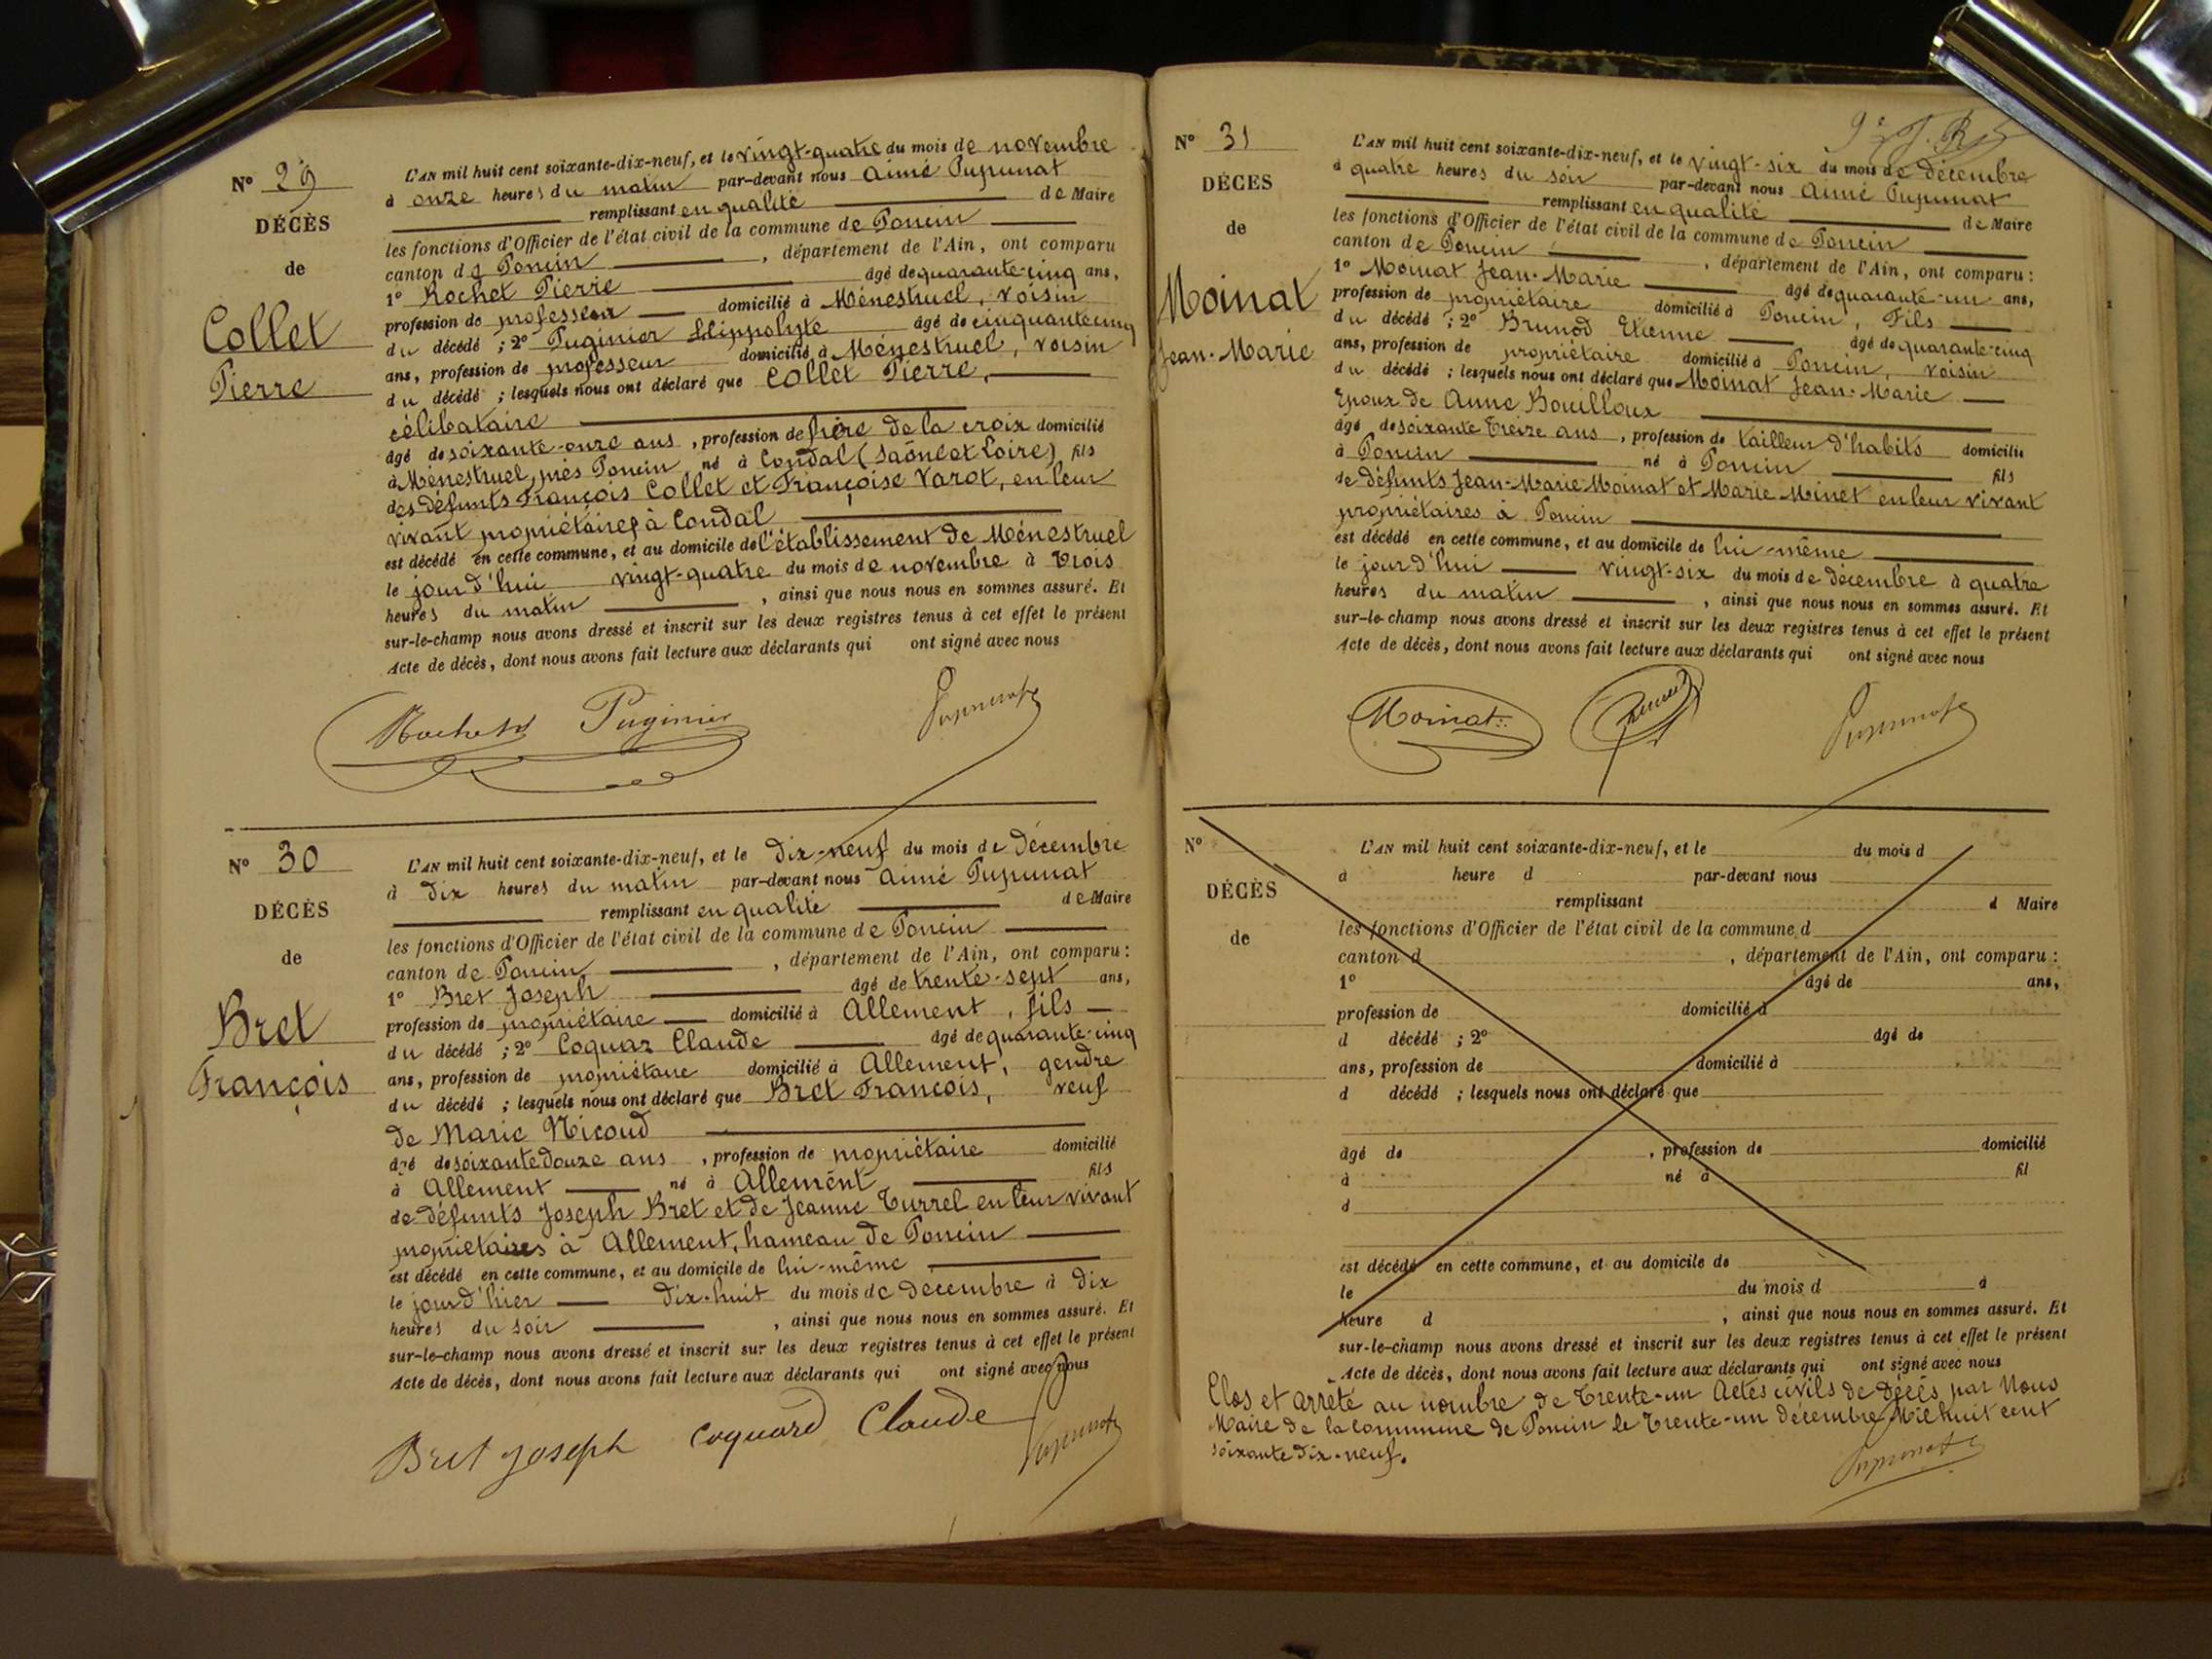 Nº 29
DÉCÈS
de
Collet
Pierre
L'AN mil huit cent soixante-dix-neuf, et le vingt-quatre du mois de novembre
à onze heures du matin par-devant nous Aimé Pupunat
remplissant en qualité de Maire
les fonctions d'Officier de l'état civil de la commune de Poncin
canton de Poncin, département de l'Ain, ont comparu
1º Rochet Pierre âgé de quarante-cinq ans,
profession de professeur domicilié à Ménestruel, voisin
du décédé ; 2º Puginier Hippolyte âgé de cinquante cinq
ans, profession de professeur domicilié à Ménestruel, voisin
du décédé ; lesquels nous ont déclaré que Collet Pierre,
célibataire
âgé de soixante-onze ans, profession de frère de la croix domicilié
à Ménestruel, près Poncin né à Condal (Saône et Loire) fils
des défunts François Collet et Françoise Varot, en leur
vivant propriétaires à Condal
est décédé en cette commune, et au domicile de l'établissement de Ménestruel
le jour d'hui vingt-quatre du mois de novembre à trois
heures du matin, ainsi que nous nous en sommes assuré. Et
sur-le-champ nous avons dressé et inscrit sur les deux registres tenus à cet effet le présent
Acte de décès, dont nous avons fait lecture aux déclarants qui ont signé avec nous
Rochet Puginier Pupunat
Nº 30
DÉCÈS
de
Bret
François
L'AN mil huit cent soixante-dix-neuf, et le dix-neuf du mois de Décembre
à dix heures du matin par-devant nous Aimé Pupunat
remplissant en qualité de Maire
les fonctions d'Officier de l'état civil de la commune de Poncin
canton de Poncin, département de l'Ain, ont comparu :
1º Bret Joseph âgé de trente-sept ans,
profession de propriétaire domicilié à Allement, fils
du décédé ; 2º Coquaz Claude âgé de quarante-cinq
ans, profession de propriétaire domicilié à Allement, gendre
du décédé ; lesquels nous ont déclaré que Bret François, veuf
de Marie Nicoud
âgé de soixante douze ans, profession de propriétaire domicilié
à Allement né à Allement fils
de défunts Joseph Bret et de Jeanne Turrel en leur vivant
propriétaires à Allement, hameau de Poncin
est décédé en cette commune, et au domicile de lui-même
le jour d'hier dix-huit du mois de décembre à dix
heures du soir, ainsi que nous nous en sommes assuré. Et
sur-le-champ nous avons dressé et inscrit sur les deux registres tenus à cet effet le présent
Acte de décès, dont nous avons fait lecture aux déclarants qui ont signé avec nous
Bret joseph coquard Claude Pupunat
Nº 31
DÉCÈS
de
Moinat
Jean-Marie
L'AN mil huit cent soixante-dix-neuf, et le vingt-six du mois de décembre
à quatre heures du soir par-devant nous Aimé Pupunat
remplissant en qualité de Maire
les fonctions d'Officier de l'état civil de la commune de Poncin
canton de Poncin, département de l'Ain, ont comparu :
1º Moinat Jean-Marie âgé de quarante-un ans,
profession de propriétaire domicilié à Poncin, Fils
du décédé ; 2º Brunod Etienne âgé de quarante-cinq
ans, profession de propriétaire domicilié à Poncin, voisin
du décédé ; lesquels nous ont déclaré que Moinat Jean-Marie
Epoux de Anne Bouilloux
âgé de soixante treize ans, profession de tailleur d'habits domicilié
à Poncin né à Poncin fils
de défunts Jean-Marie Moinat et Marie Minet en leur vivant
propriétaires à Poncin
est décédé en cette commune, et au domicile de lui-même
le jour d'hui vingt-six du mois de décembre à quatre
heures du matin, ainsi que nous nous en sommes assuré. Et
sur-le-champ nous avons dressé et inscrit sur les deux registres tenus à cet effet le présent
Acte de décès, dont nous avons fait lecture aux déclarants qui ont signé avec nous
Moinat Pupunat
Nº
DÉCÈS
de
L'AN mil huit cent soixante-dix-neuf, et le du mois d
à heure d par-devant nous
remplissant d Maire
les fonctions d'Officier de l'état civil de la commune d
canton d, département de l'Ain, ont comparu :
1º âgé de ans,
profession de domicilié à
d décédé ; 2º âgé de
ans, profession de domicilié à
d décédé ; lesquels nous ont déclaré que
âgé de, profession de domicilié
à né à fil
d
est décédé en cette commune, et au domicile de
le du mois d à
heure d, ainsi que nous nous en sommes assuré. Et
sur-le-champ nous avons dressé et inscrit sur les deux registres tenus à cet effet le présent
Acte de décès, dont nous avons fait lecture aux déclarants qui ont signé avec nous
Clos et arrêté au nombre de trente-un Actes civils de décès par Nous
Maire de la commune de Poncin le trente-un décembre Mil huit cent
soixante dix-neuf.
Pupunat